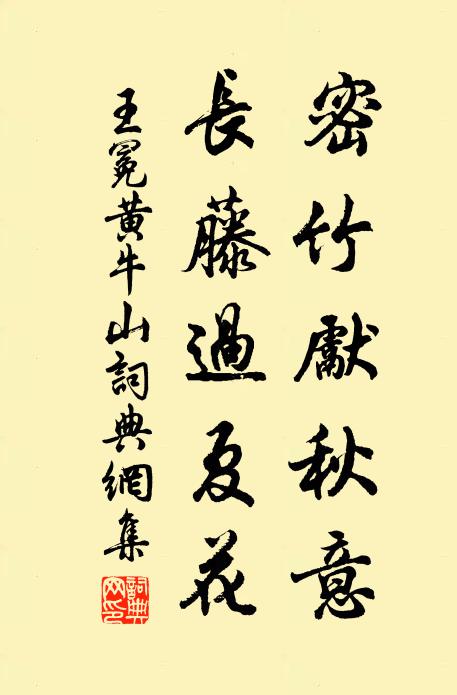 密竹獻秋意
長藤過夏花
王冕黃牛山詞典網集
詞典
网印